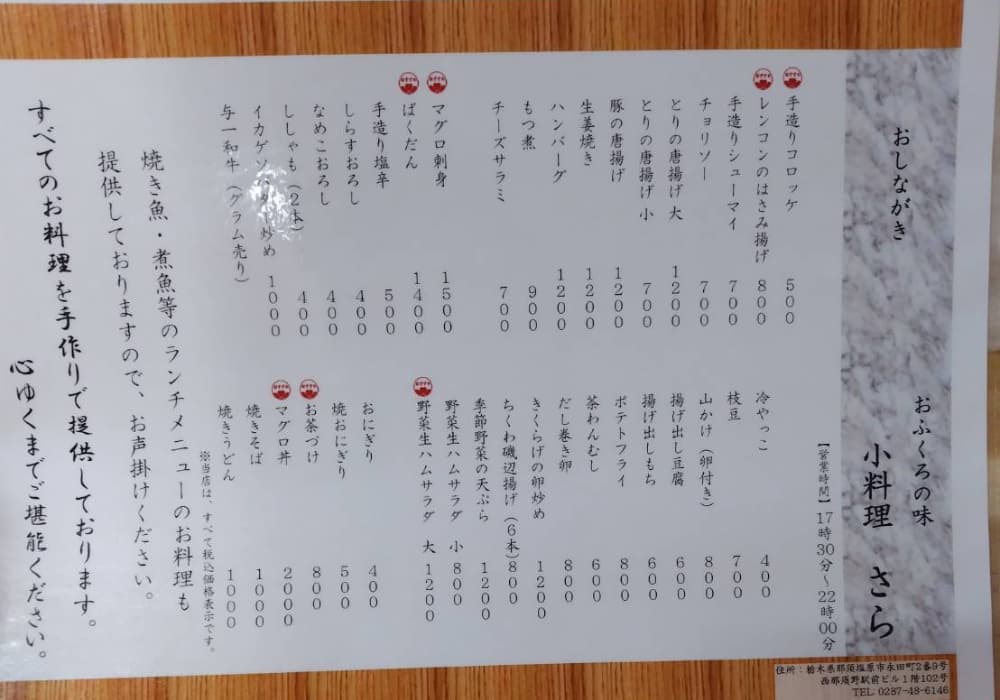 おしながき
おふくろの味
小料理 さら
【営業時間】17時30分～22時00分
手造りコロッケ 500
レンコンのはさみ揚げ 800
手造りシューマイ 700
チョリソー 700
とりの唐揚げ 大 1200
とりの唐揚げ 小 700
豚の唐揚げ 1200
生姜焼き 1200
ハンバーグ 1200
もつ煮 900
チーズサラミ 700
マグロ刺身 1500
ばくだん 1400
手造り塩辛 500
しらすおろし 400
なめこおろし 400
ししゃも（2本） 400
イカゲソバター炒め 1000
与一和牛（グラム売り）
冷やっこ 400
枝豆 700
山かけ（卵付き） 800
揚げ出し豆腐 600
揚げ出しもち 600
ポテトフライ 800
茶わんむし 600
だし巻き卵 800
きくらげの卵炒め 1200
ちくわ磯辺揚げ（6本） 800
季節野菜の天ぷら 1200
野菜生ハムサラダ 小 800
野菜生ハムサラダ 大 1200
おにぎり 400
焼おにぎり 500
お茶づけ 800
マグロ丼 2000
焼きそば 1000
焼きうどん 1000
※当店は、すべて税込価格表示です。
焼き魚・煮魚等のランチメニューのお料理も
提供しておりますので、お声掛けください。
すべてのお料理を手作りで提供しております。
心ゆくまでご堪能ください。
住所：栃木県那須塩原市永田町2番9号
西那須野駅前ビル1階102号
TEL:0287-48-6146